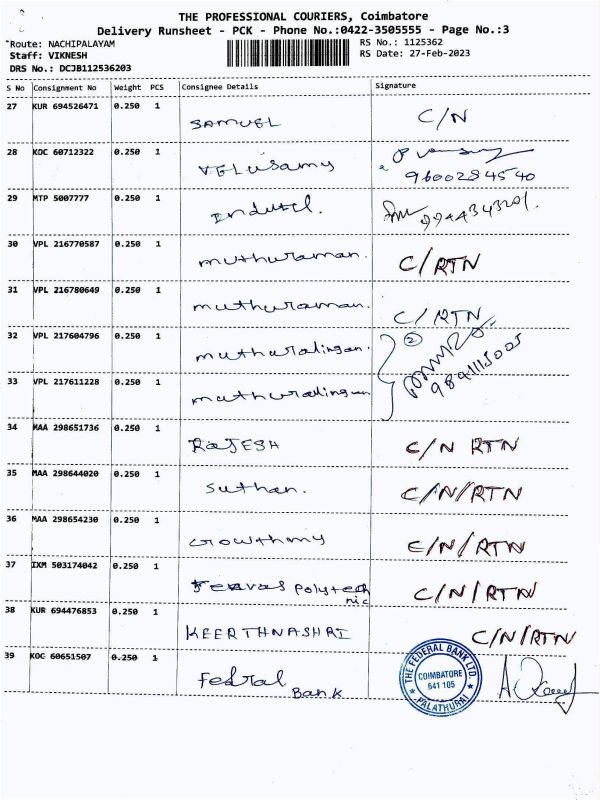 THE PROFESSIONAL COURIERS, Coimbatore
Delivery Runsheet - PCK - Phone No.:0422-3505555 - Page No.:3
Route: NACHIPALAYAM
RS No.: 1125362
Staff: VIKNESH
RS Date: 27-Feb-2023
DRS No.: DCJB112536203
S No Consignment No Weight PCS Consignee Details Signature
27 KUR 694526471 0.250 1 SAMUEL C/N
28 KOC 60712322 0.250 1 VELUSAMY
9600284540
29 MTP 5007777 0.250 1
30 VPL 216770587 0.250 1 muthuraman. C/RTN
31 VPL 216780649 0.250 1 muthuraman. C/RTN
32 VPL 217604796 0.250 1 muthuralingan. 2
33 VPL 217611228 0.250 1 muthuralingam
34 MAA 298651736 0.250 1 RAJESH C/N RTN
35 MAA 298644020 0.250 1 Suthan. C/N/RTN
36 MAA 298654230 0.250 1 Gowthmy C/N/RTN
37 IXM 503174042 0.250 1 Polytech C/N/RTN
nic
38 KUR 694476853 0.250 1 KEERTHNASHRI C/N/RTN
39 KOC 60651507 0.250 1 Fedral
Bank
THE FEDERAL BANK LTD.
COIMBATORE
641 105
PALATHURAI